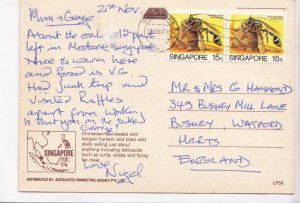 Mum & George 21st Nov.
About the only old part
left in Modern Singapore
Nice & warm here
and food is V.G.
Had Junk trip and
Visited Raffles
apart from Workin.
Is that you on the bikes
George
Chinatown is crowded with
bargain hunters and lined with
stalls selling just about
anything including delicacies
such as turtle, snake and flying
fox meat.
Love
Nigel
SINGAPORE
DISTRIBUTED BY: ASSOCIATED MARKETING AGENCY PTE. LTD.
SINGAPORE 15c
SINGAPORE 15c
MR & MRS G HAMMOND
349 BUSHEY MILL LANE
BUSHEY, WATFORD
HERTS
ENGLAND
LP58